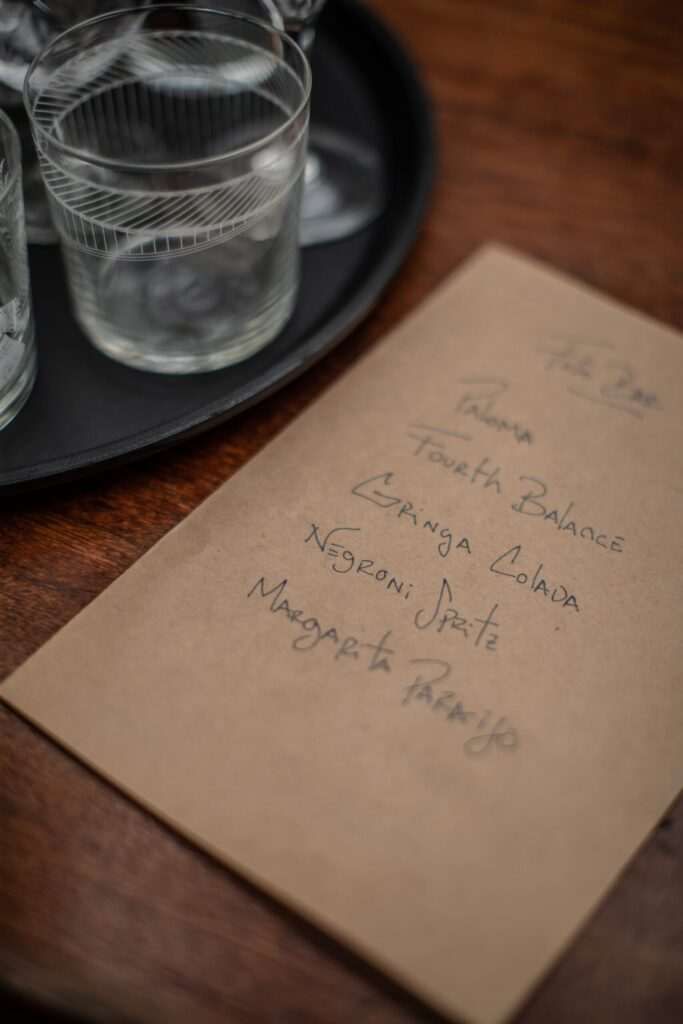 Bar
Paloma
Fourth Balance
Gringa Colada
Negroni Spritz
Margarita